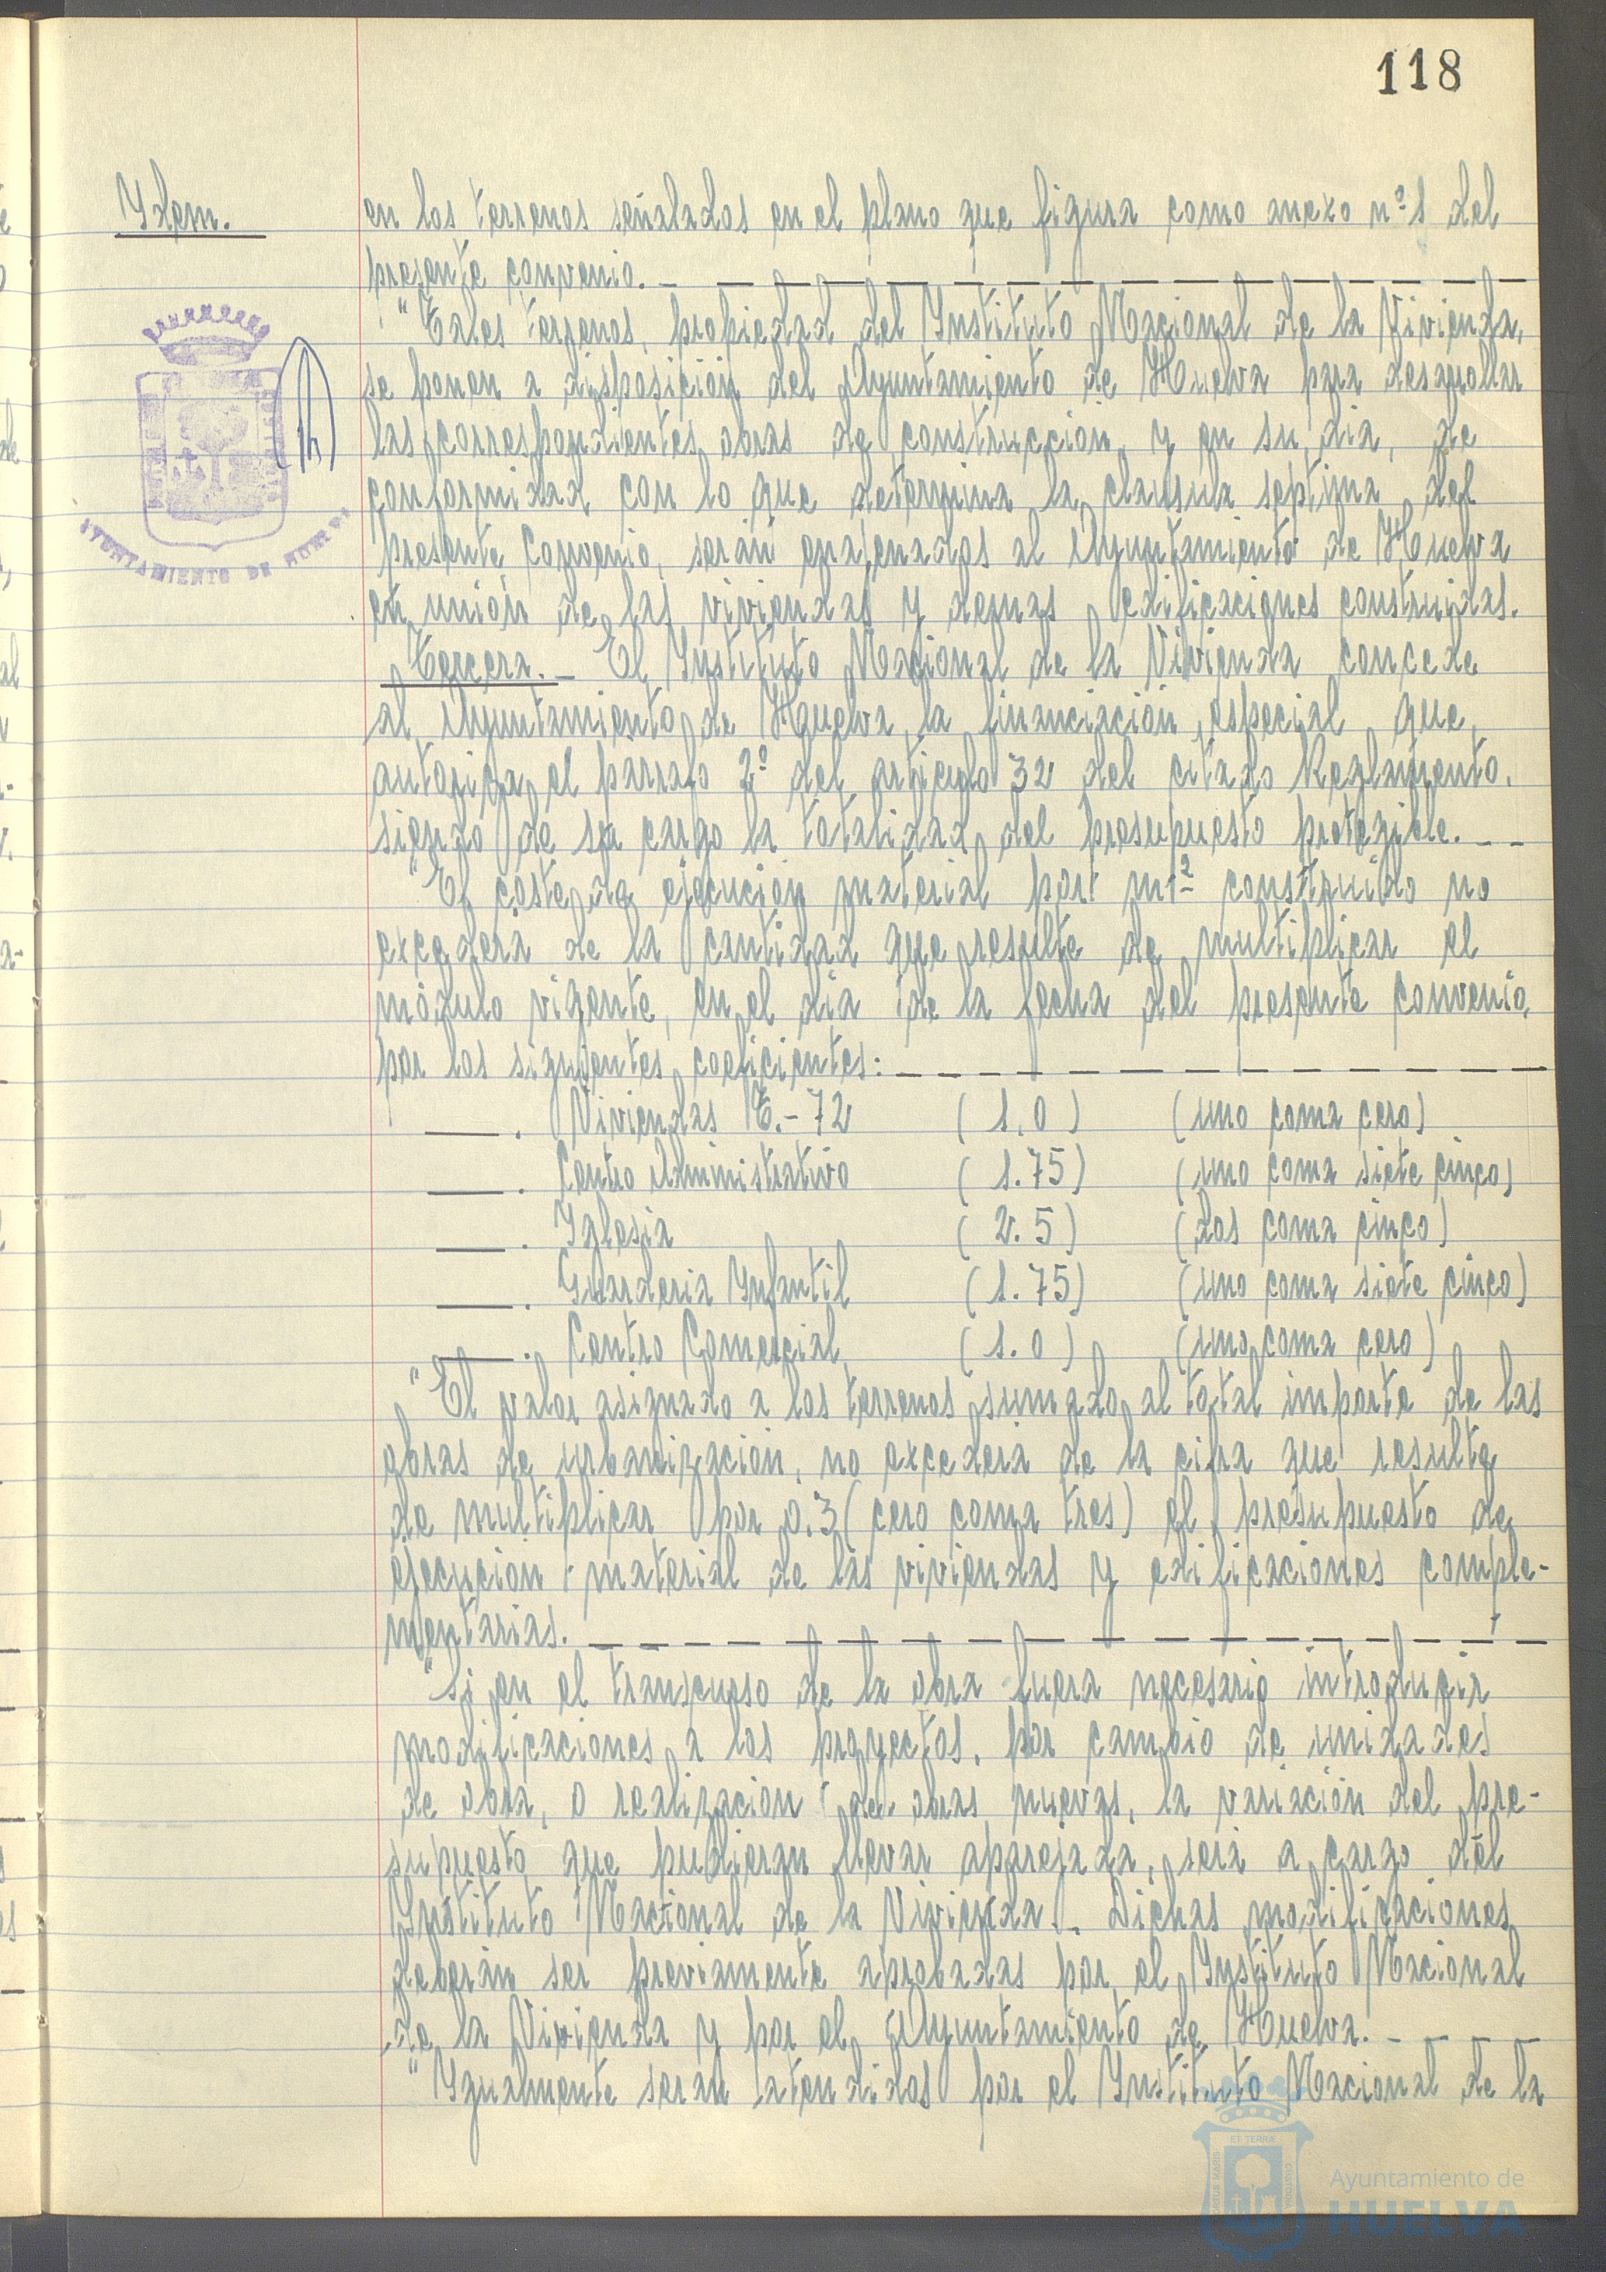 118
Ydem.
en los terrenos señalados en el plano que figura como anexo nº 1 del
presente convenio. -
"Tales terrenos, propiedad del Ynstituto Nacional de la Vivienda,
se ponen a disposición del Ayuntamiento de Huelva para desarrollar
las correspondientes obras de construcción y en su día, de
conformidad con lo que determina la clausula septima del
presente Convenio, serán enajenados al Ayuntamiento de Huelva
en unión de las viviendas y demas edificaciones construidas.
Tercera. - El Ynstituto Nacional de la Vivienda concede
al Ayuntamiento de Huelva la financiación especial que
autoriza el parrafo 2º del articulo 32 del citado Reglamento,
siendo de su cargo la totalidad del presupuesto protegible. - -
"El coste de ejecución material por m² construido no
excederá de la cantidad que resulte de multiplicar el
módulo vigente, en el día de la fecha del presente convenio,
por los siguientes coeficientes:
Viviendas T.-72 (1.0) (uno coma cero)
Centro Administrativo (1.75) (uno coma siete cinco)
Yglesia (2.5) (dos coma cinco)
Guarderia Ynfantil (1.75) (uno coma siete cinco)
Centro Comercial (1.0) (uno coma cero)
"El valor asignado a los terrenos sumado al total importe de las
obras de urbanización, no excederá de la cifra que resulte
de multiplicar por 0.3 (cero coma tres) el presupuesto de
ejecución material de las viviendas y edificaciones comple-
mentarias.
"Si en el transcurso de la obra fuera necesario introducir
modificaciones a los proyectos, por cambio de unidades
de obra, o realización de obras nuevas, la variación del pre-
supuesto que pudieran llevar aparejada, será a cargo del
Ynstituto Nacional de la Vivienda. Dichas modificaciones
deberán ser previamente aprobadas por el Ynstituto Nacional
de la Vivienda y por el Ayuntamiento de Huelva. -
"Ygualmente serán atendidos por el Ynstituto Nacional de la
AYUNTAMIENTO DE HUELVA
Ayuntamiento de
HUELVA